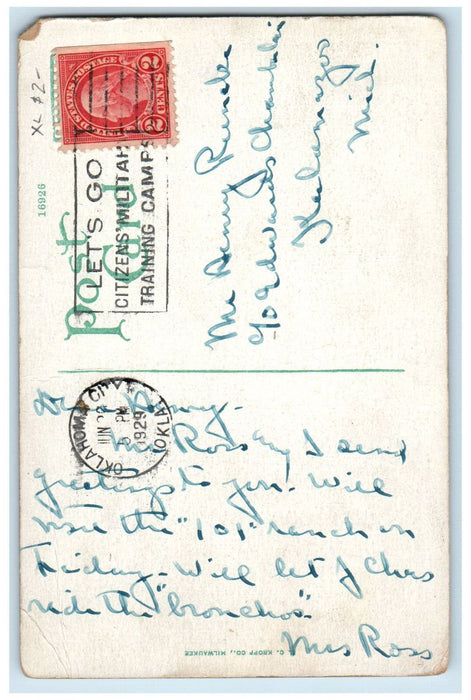 XL $2-
U.S. POSTAGE
2 CENTS 2
16926
Post
Card
LET'S GO
CITIZENS' MILITARY
TRAINING CAMPS
Mr Henry
c/o Edwards Chamberlin
Kalamazoo
Mich.
OKLAHOMA CITY
JUN
PM
1929
OKLA
Dear Henry -
Mr Ross and I send
greetings to you. Will
visit the "101" ranch on
Friday - Will let J Chas
ride the "bronchos"
Mrs Ross
C. KROPP CO., MILWAUKEE